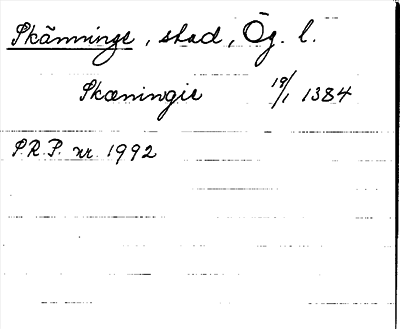 Skänninge, stad, Ög. l.
Skæningie 19/1 1384
P.R.P. nr. 1992